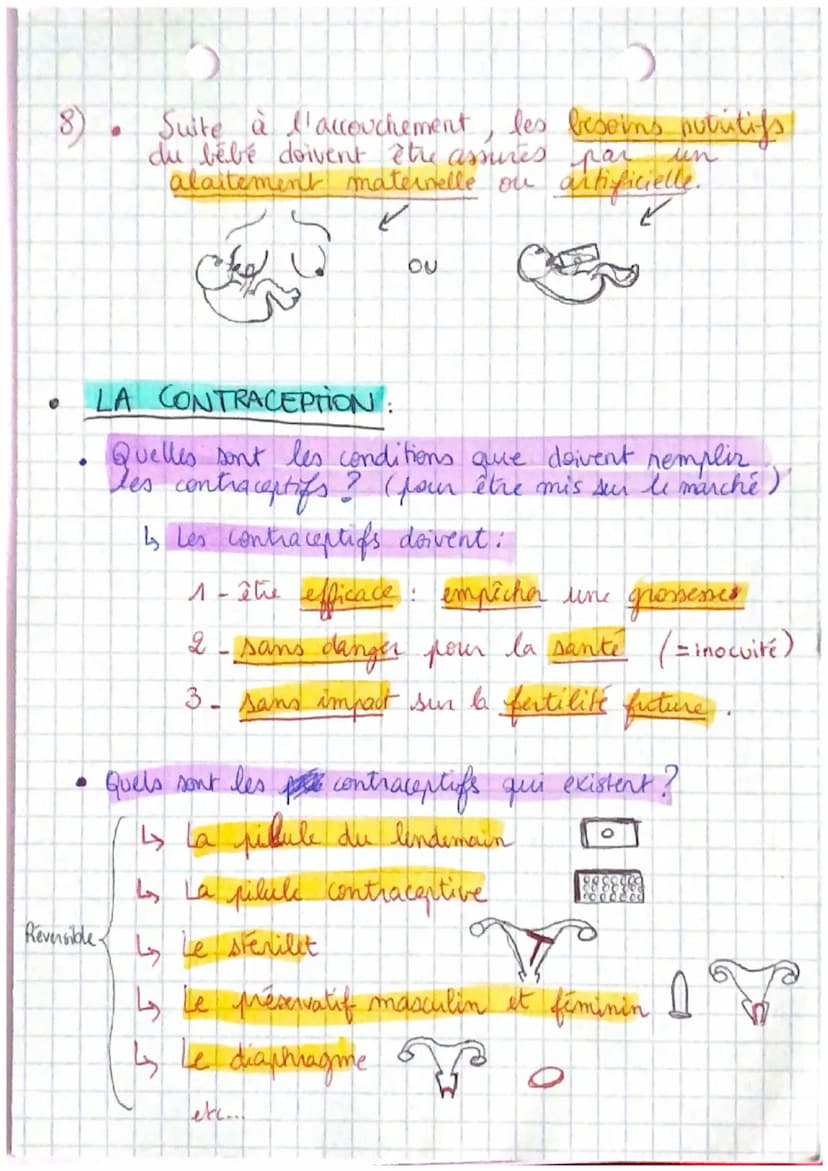 8) • Suite à l'accouchement, les besoins nutritifs
du bébé doivent être assurés par un
alaitement maternelle ou artificielle.
OU
• LA CONTRACEPTION :
• Quelles sont les conditions que doivent remplir
les contraceptifs ? (pour être mis sur le marché)
↳ Les contraceptifs doivent :
1 - être efficace : empêcher une grossesse
2 - sans danger pour la santé (= inocuité)
3 - sans impact sur la fertilité future.
• Quels sont les contraceptifs qui existent ?
↳ La pilule du lendemain
↳ La pilule contraceptive
Réversible
↳ Le stérilet
↳ Le préservatif masculin et féminin
↳ Le diaphragme
etc...